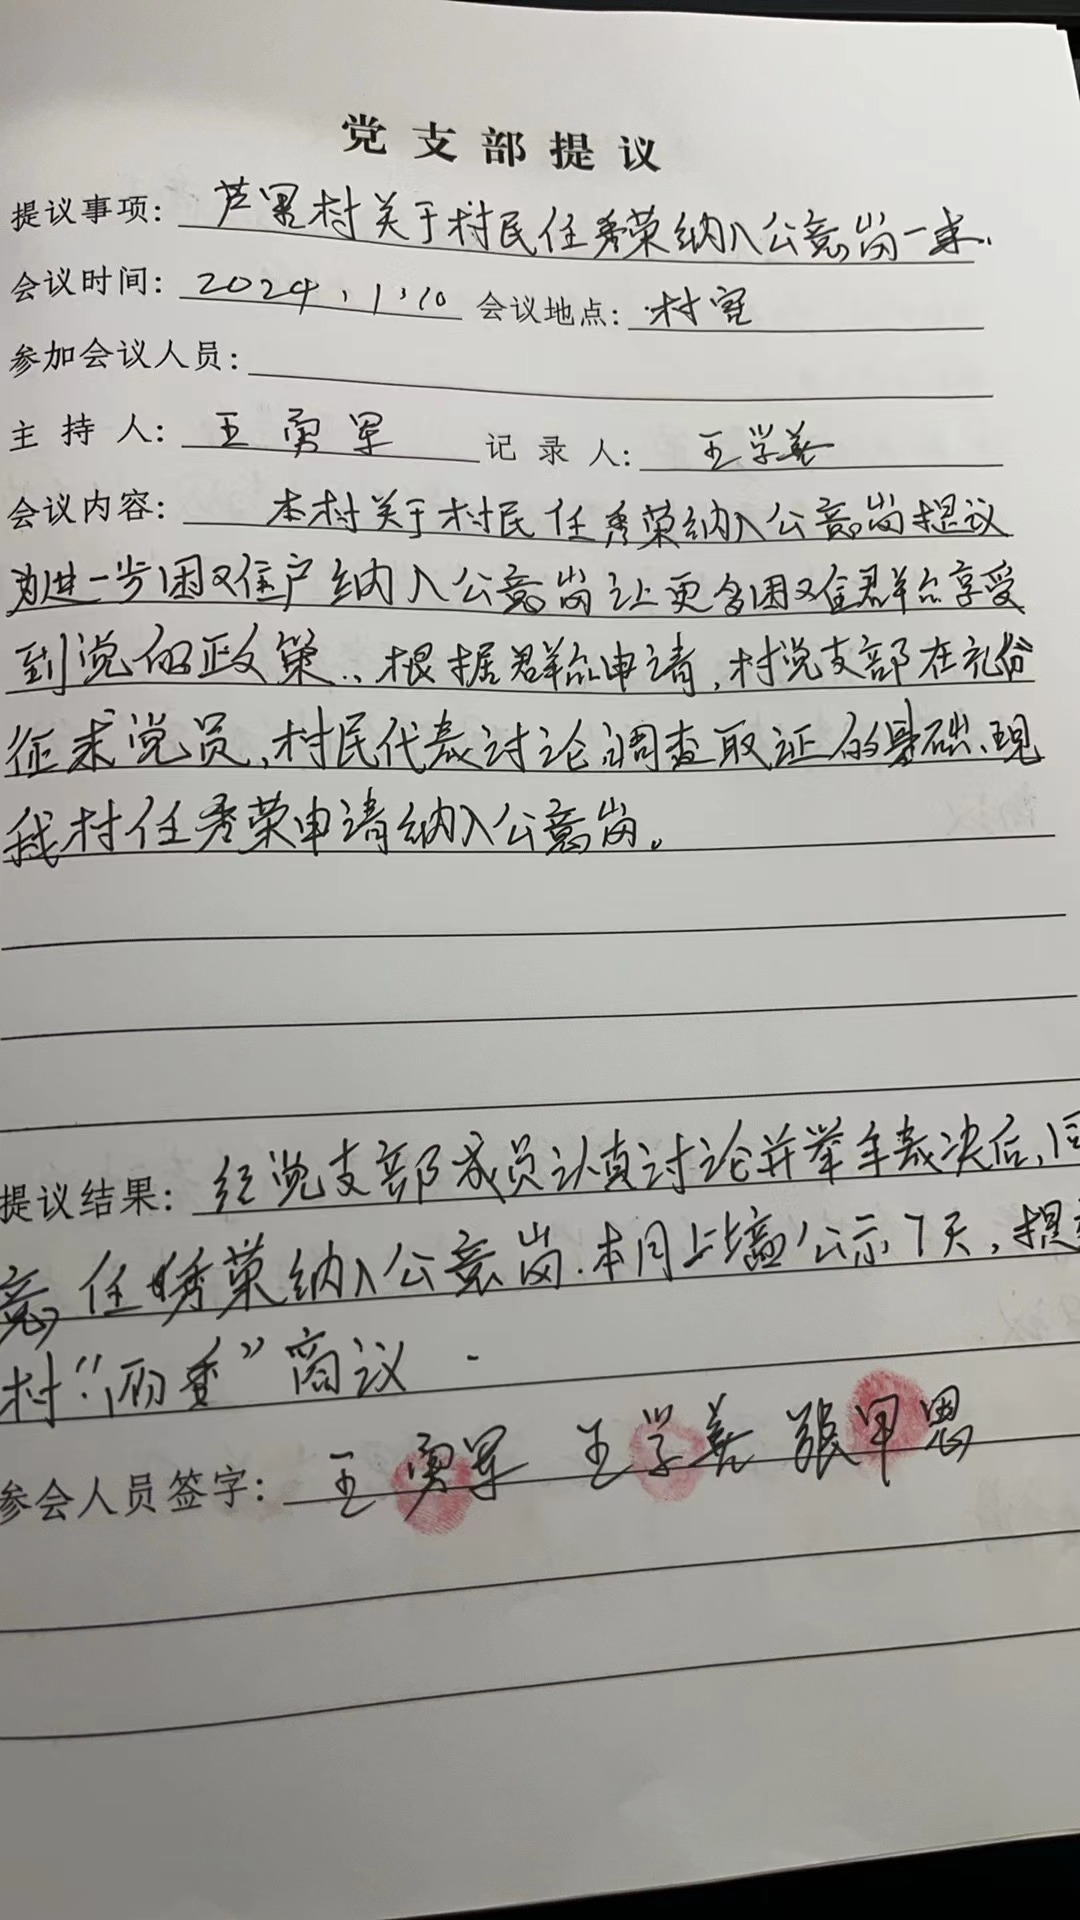 党支部提议
提议事项: 芦里村关于村民任秀荣纳入公意岗一事.
会议时间: 2024.1.10 会议地点: 村室
参加会议人员:
主持人: 王勇军 记录人: 王学善
会议内容: 本村关于村民任秀荣纳入公意岗提议
为进一步困难户纳入公意岗让更多困难群众享受
到党的政策..根据群众申请,村党支部在
征求党员,村民代表讨论,调查取证的基础,现
我村任秀荣申请纳入公意岗。
提议结果: 经党支部成员认真讨论并举手裁决后,同
意任秀荣纳入公意岗.本月上墙公示7天,提
村"两委"商议.
参会人员签字: 王勇军 王学善 张甲恩